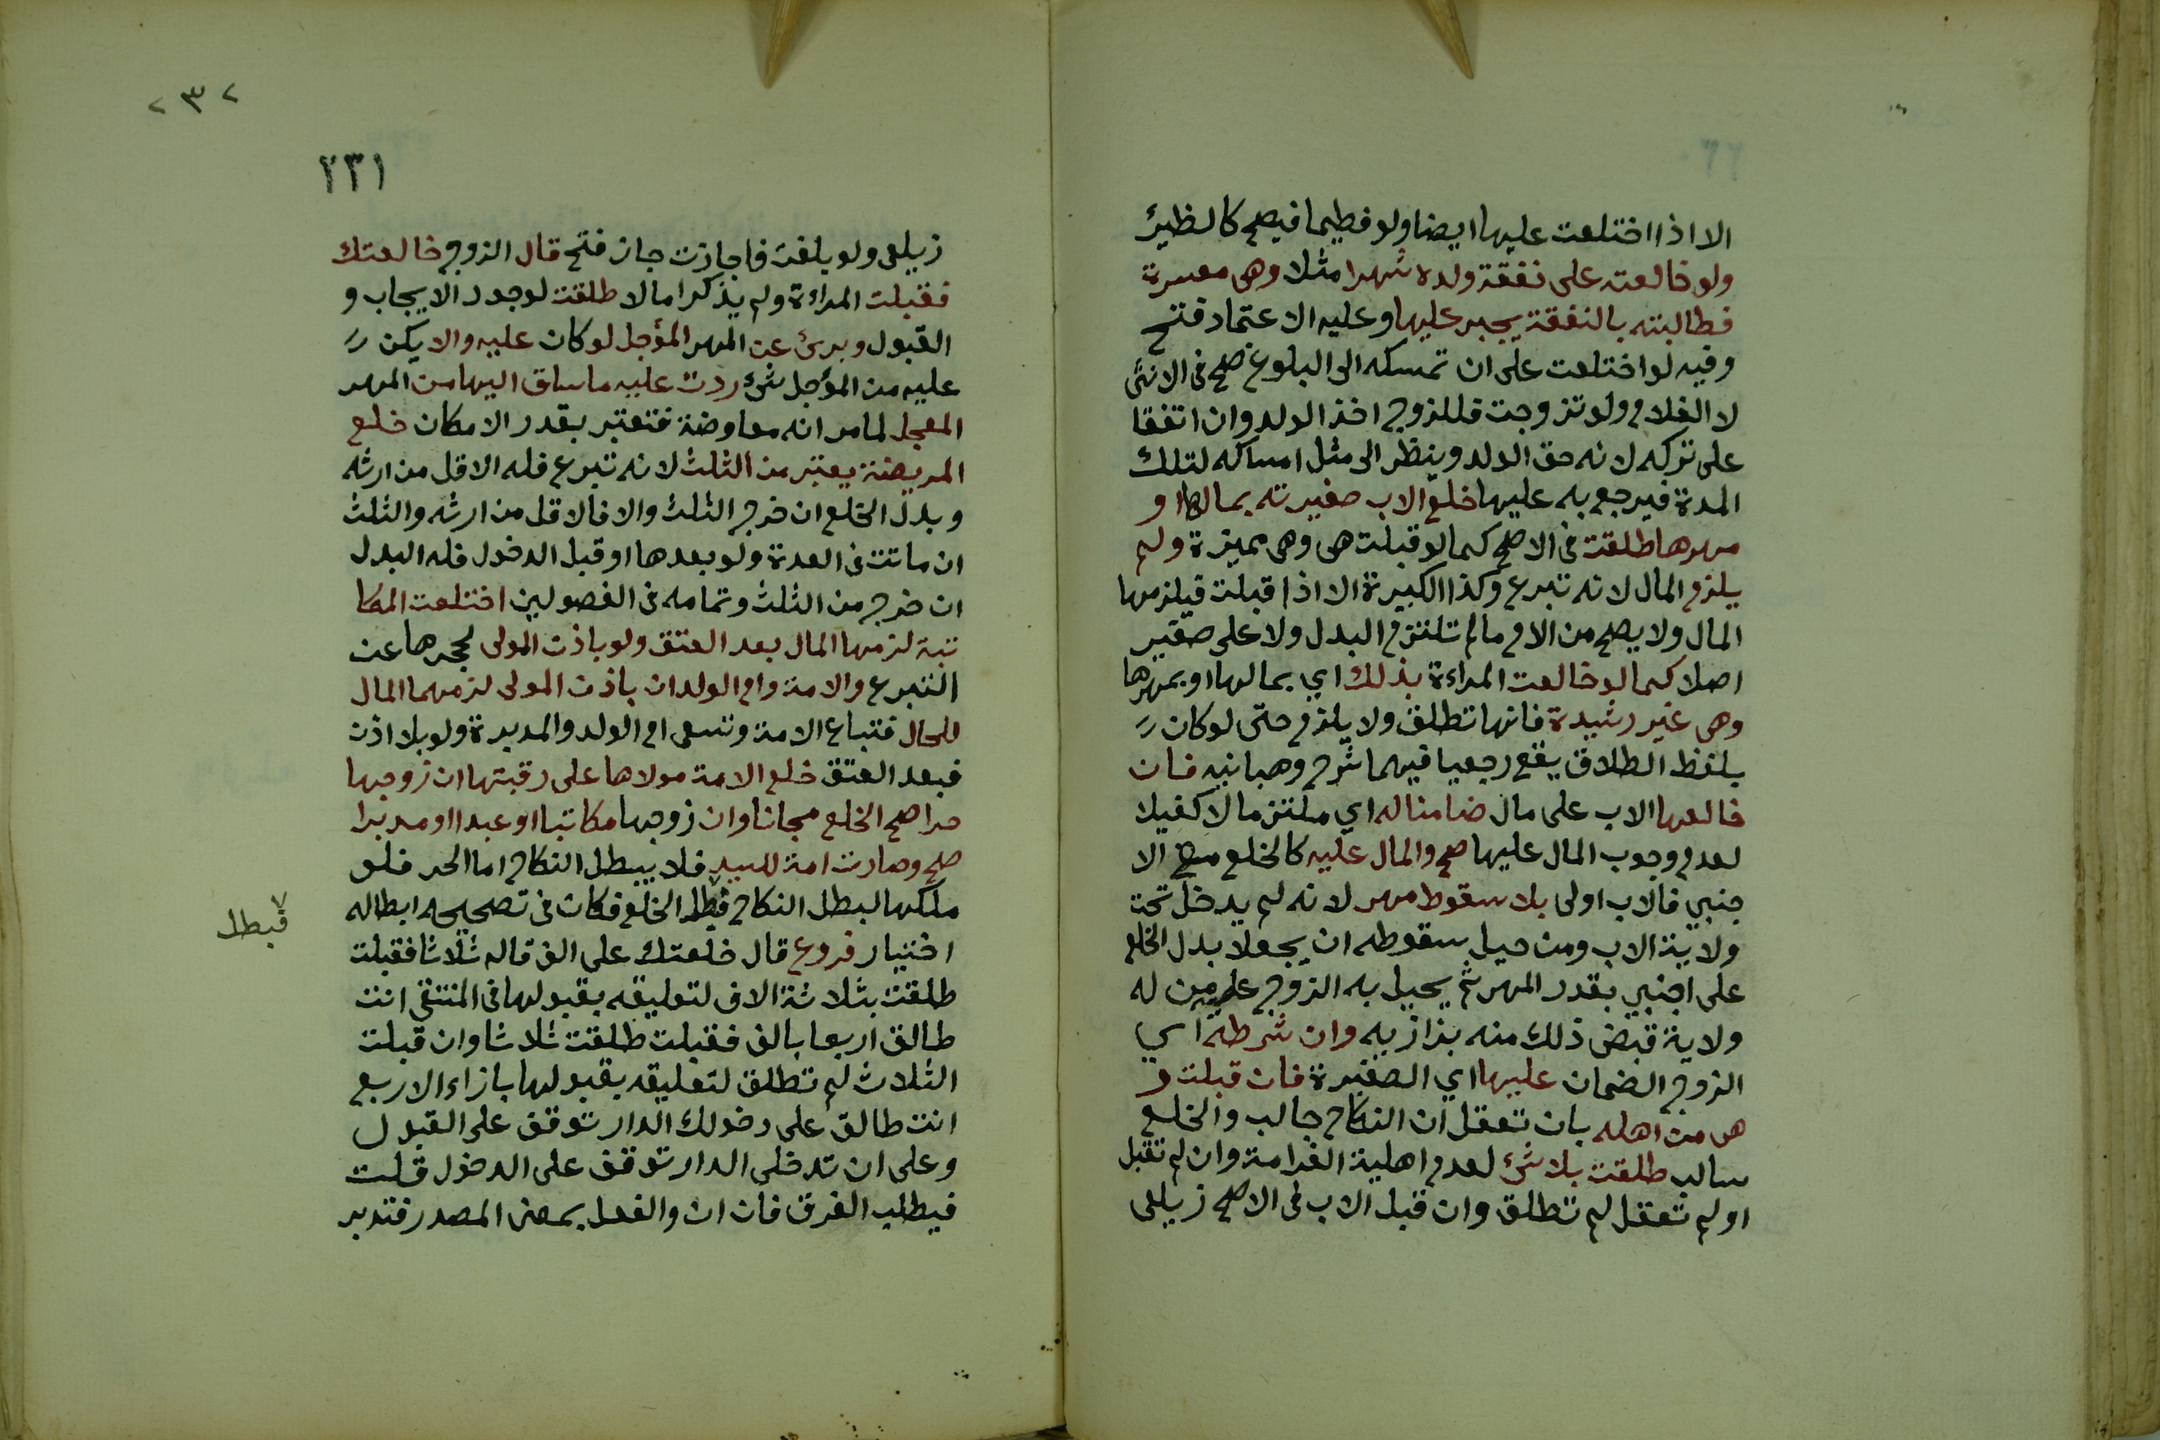 الا اذا اختلعت عليها ايضا ولو فطيما فيصح كالظئر
ولو خالعته على نفقة ولده شهرا مثلا وهى معسرة
فطالبته بالنفقة يجبر عليها وعليه الاعتماد فتح
وفيه لو اختلعت على ان تمسكه الى البلوغ صح فى الانثى
لا الغلام ولو تزوجت فللزوج اخذ الولد وان اتفقا
على تركه لانه حق الولد وينظر الى مثل امساكه لتلك
المدة فيرجع به عليها خلع الاب صغيرته بمالها او
مهرها طلقت فى الاصح كما لو قبلت هى وهى مميزة ولم
يلزم المال لانه تبرع وكذا الكبيرة الا اذا قبلت فيلزمها
المال ولا يصح من الام مالم تلتزم البدل ولا على صغير
اصلا كما لو خالعت المراءة بذلك اي بمالها او بمهرها
وهى غير رشيدة فانها تطلق ولا يلزم حتى لو كان
بلفظ الطلاق يقع رجعيا فيهما شرح وهبانيه فان
خالعها الاب على مال ضامنا له اي ملتزما لا كفيلا
لعدم وجوب المال عليها صح والمال عليه كالخلع مع الا
جنبي فالاب اولى بلا سقوط مهر لانه لم يدخل تحت
ولاية الاب ومن حيل سقوطه ان يجعلا بدل الخلع
على اجنبي بقدر المهر ثم يحيل به الزوج عليه من له
ولاية قبض ذلك منه بزازيه وان شرطه اي
الزوج الضمان عليها اي الصغيرة فان قبلت و
هى من اهله بان تعقل ان النكاح جالب والخلع
سالب طلقت بلا شئ لعدم اهلية الغرامة وان لم تقبل
او لم تعقل لم تطلق وان قبل الاب فى الاصح زيلعى
٢٣٢
٢٣١
زيلعى ولو بلغت فاجازت جاز فتح قال الزوج خالعتك
فقبلت المراءة ولم يذكرا مالا طلقت لوجود الايجاب و
القبول وبرئ عن المهر المؤجل لو كان عليه والا يكن
عليه من المؤجل شئ ردت عليه ما ساق اليها من المهر
المعجل لما مر انه معاوضة فتعتبر بقدر الامكان خلع
المريضة يعتبر من الثلث لانه تبرع فله الاقل من ارثه
وبدل الخلع ان خرج الثلث والا فالاقل من ارثه والثلث
ان ماتت فى العدة ولو بعدها او قبل الدخول فله البدل
ان خرج من الثلث وتمامه فى الفصولين اختلعت المكا
تبة لزمها المال بعد العتق ولو باذن المولى لحجرها عن
التبرع والامة وام الولد ان باذن المولى لزمهما المال
للحال فتباع الامة وتسعى ام الولد والمدبرة ولو بلا اذن
فبعد العتق خلع الامة مولاها على رقبتها ان زوجها
حرا صح الخلع مجانا وان زوجها مكاتبا او عبدا او مدبرا
صح وصارت امة للسيد فلا يبطل النكاح اما الحر فلو
ملكها لبطل النكاح فبطل الخلع فكان فى تصحيحه ابطاله
فبطل
اختيار فروع قال خلعتك على الف قاله ثلاثا فقبلت
طلقت بثلاثة الاف لتعليقه بقبولها فى المنتقى انت
طالق اربعا بالف فقبلت طلقت ثلاثا وان قبلت
الثلاث لم تطلق لتعليقه بقبولها بازاء الاربع
انت طالق على دخولك الدار توقف على القبول
وعلى ان تدخلى الدار توقف على الدخول قلت
فيطلب الفرق فان ان والفعل بمعنى المصدر فتدبر